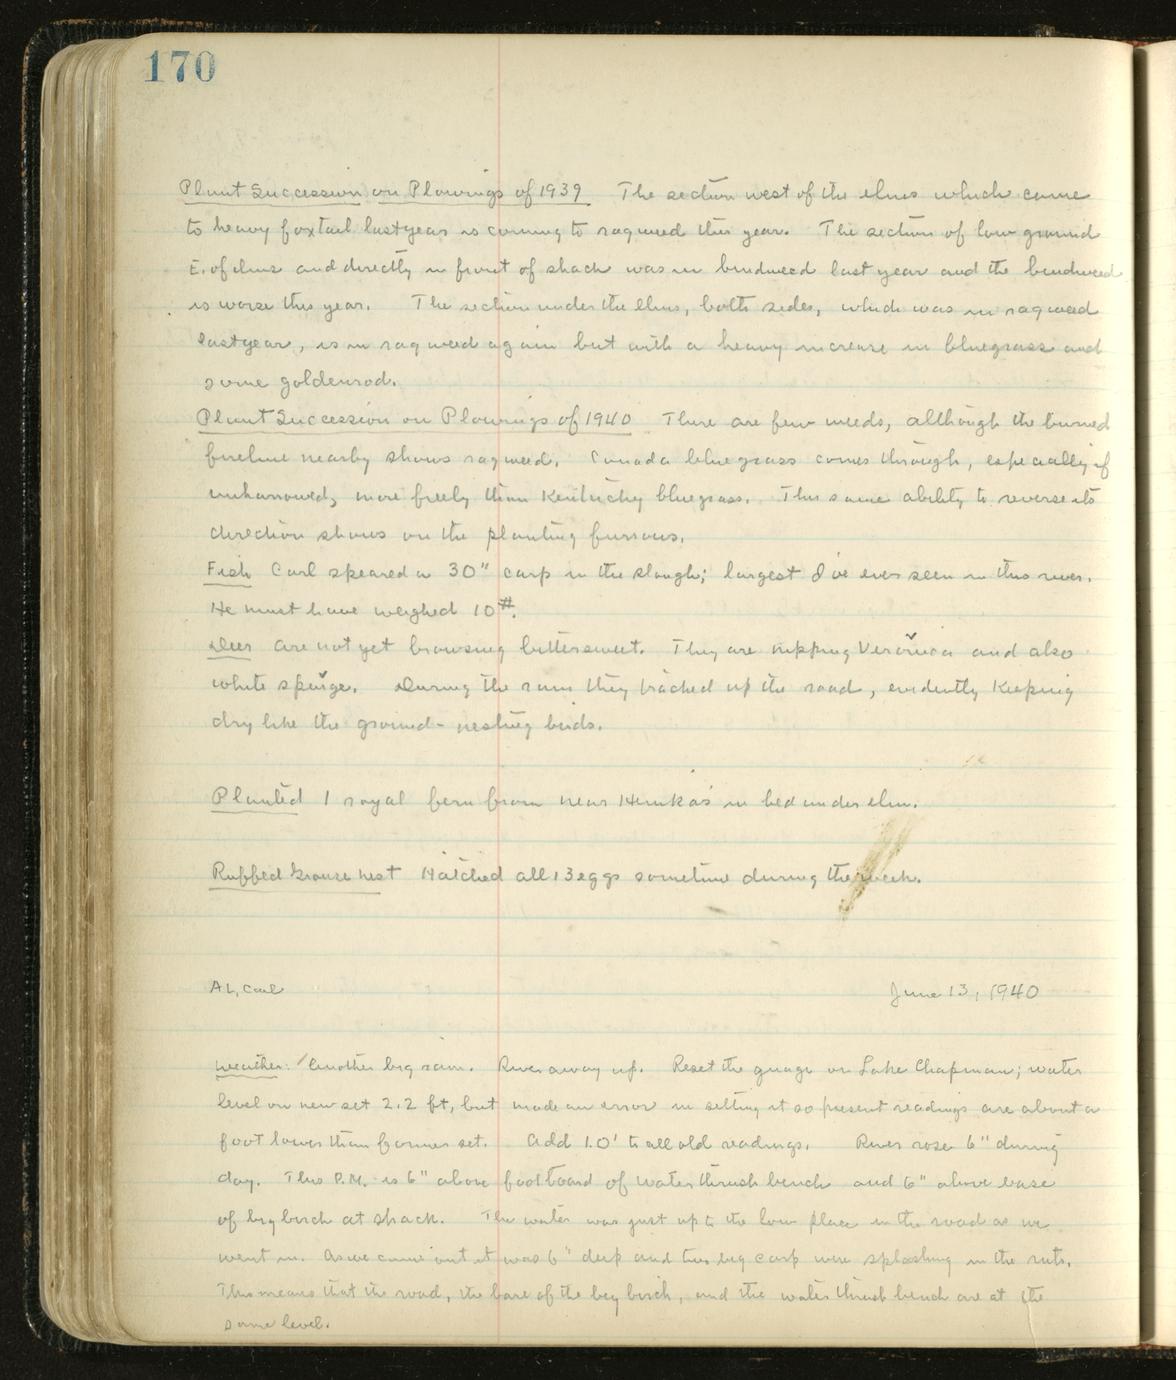 170
Plant Succession on Plowings of 1939 The section west of the elms which came
to heavy foxtail last year is coming to ragweed this year. The section of low ground
E. of elms and directly in front of shack was in bindweed last year and the bindweed
is worse this year. The section under the elms, both sides, which was in ragweed
last year, is in ragweed again but with a heavy increase in bluegrass and
some goldenrod.
Plant Succession on Plowings of 1940 There are few weeds, although the burned
fireline nearby shows ragweed. Canada bluegrass comes through, especially if
unharrowed, more freely than Kentucky bluegrass. This same ability to reverse its
direction shows on the planting furrows.
Fish Carl speared a 30" carp in the slough; largest I've ever seen in this river.
He must have weighed 10#.
Deer are not yet browsing bittersweet. They are nipping Veronica and also
white spurge. During the rain they tracked up the road, evidently keeping
dry like the ground-nesting birds.
Planted 1 royal fern from near Hinka's in bed under elm.
Ruffed Grouse nest Hatched all 13 eggs sometime during the week.
AL, Carl June 13, 1940
Weather: Another big rain. River away up. Reset the guage on Lake Chapman; water
level on new set 2.2 ft, but made an error in setting it so present readings are about a
foot lower than former set. Add 1.0' to all old readings. River rose 6" during
day. This P.M. is 6" above footboard of waterthrush bench and 6" above base
of big birch at shack. The water was just up to the low place in the road as we
went in. As we came out it was 6" deep and two big carp were splashing in the ruts.
This means that the road, the base of the big birch, and the water thrush bench are at the
same level.